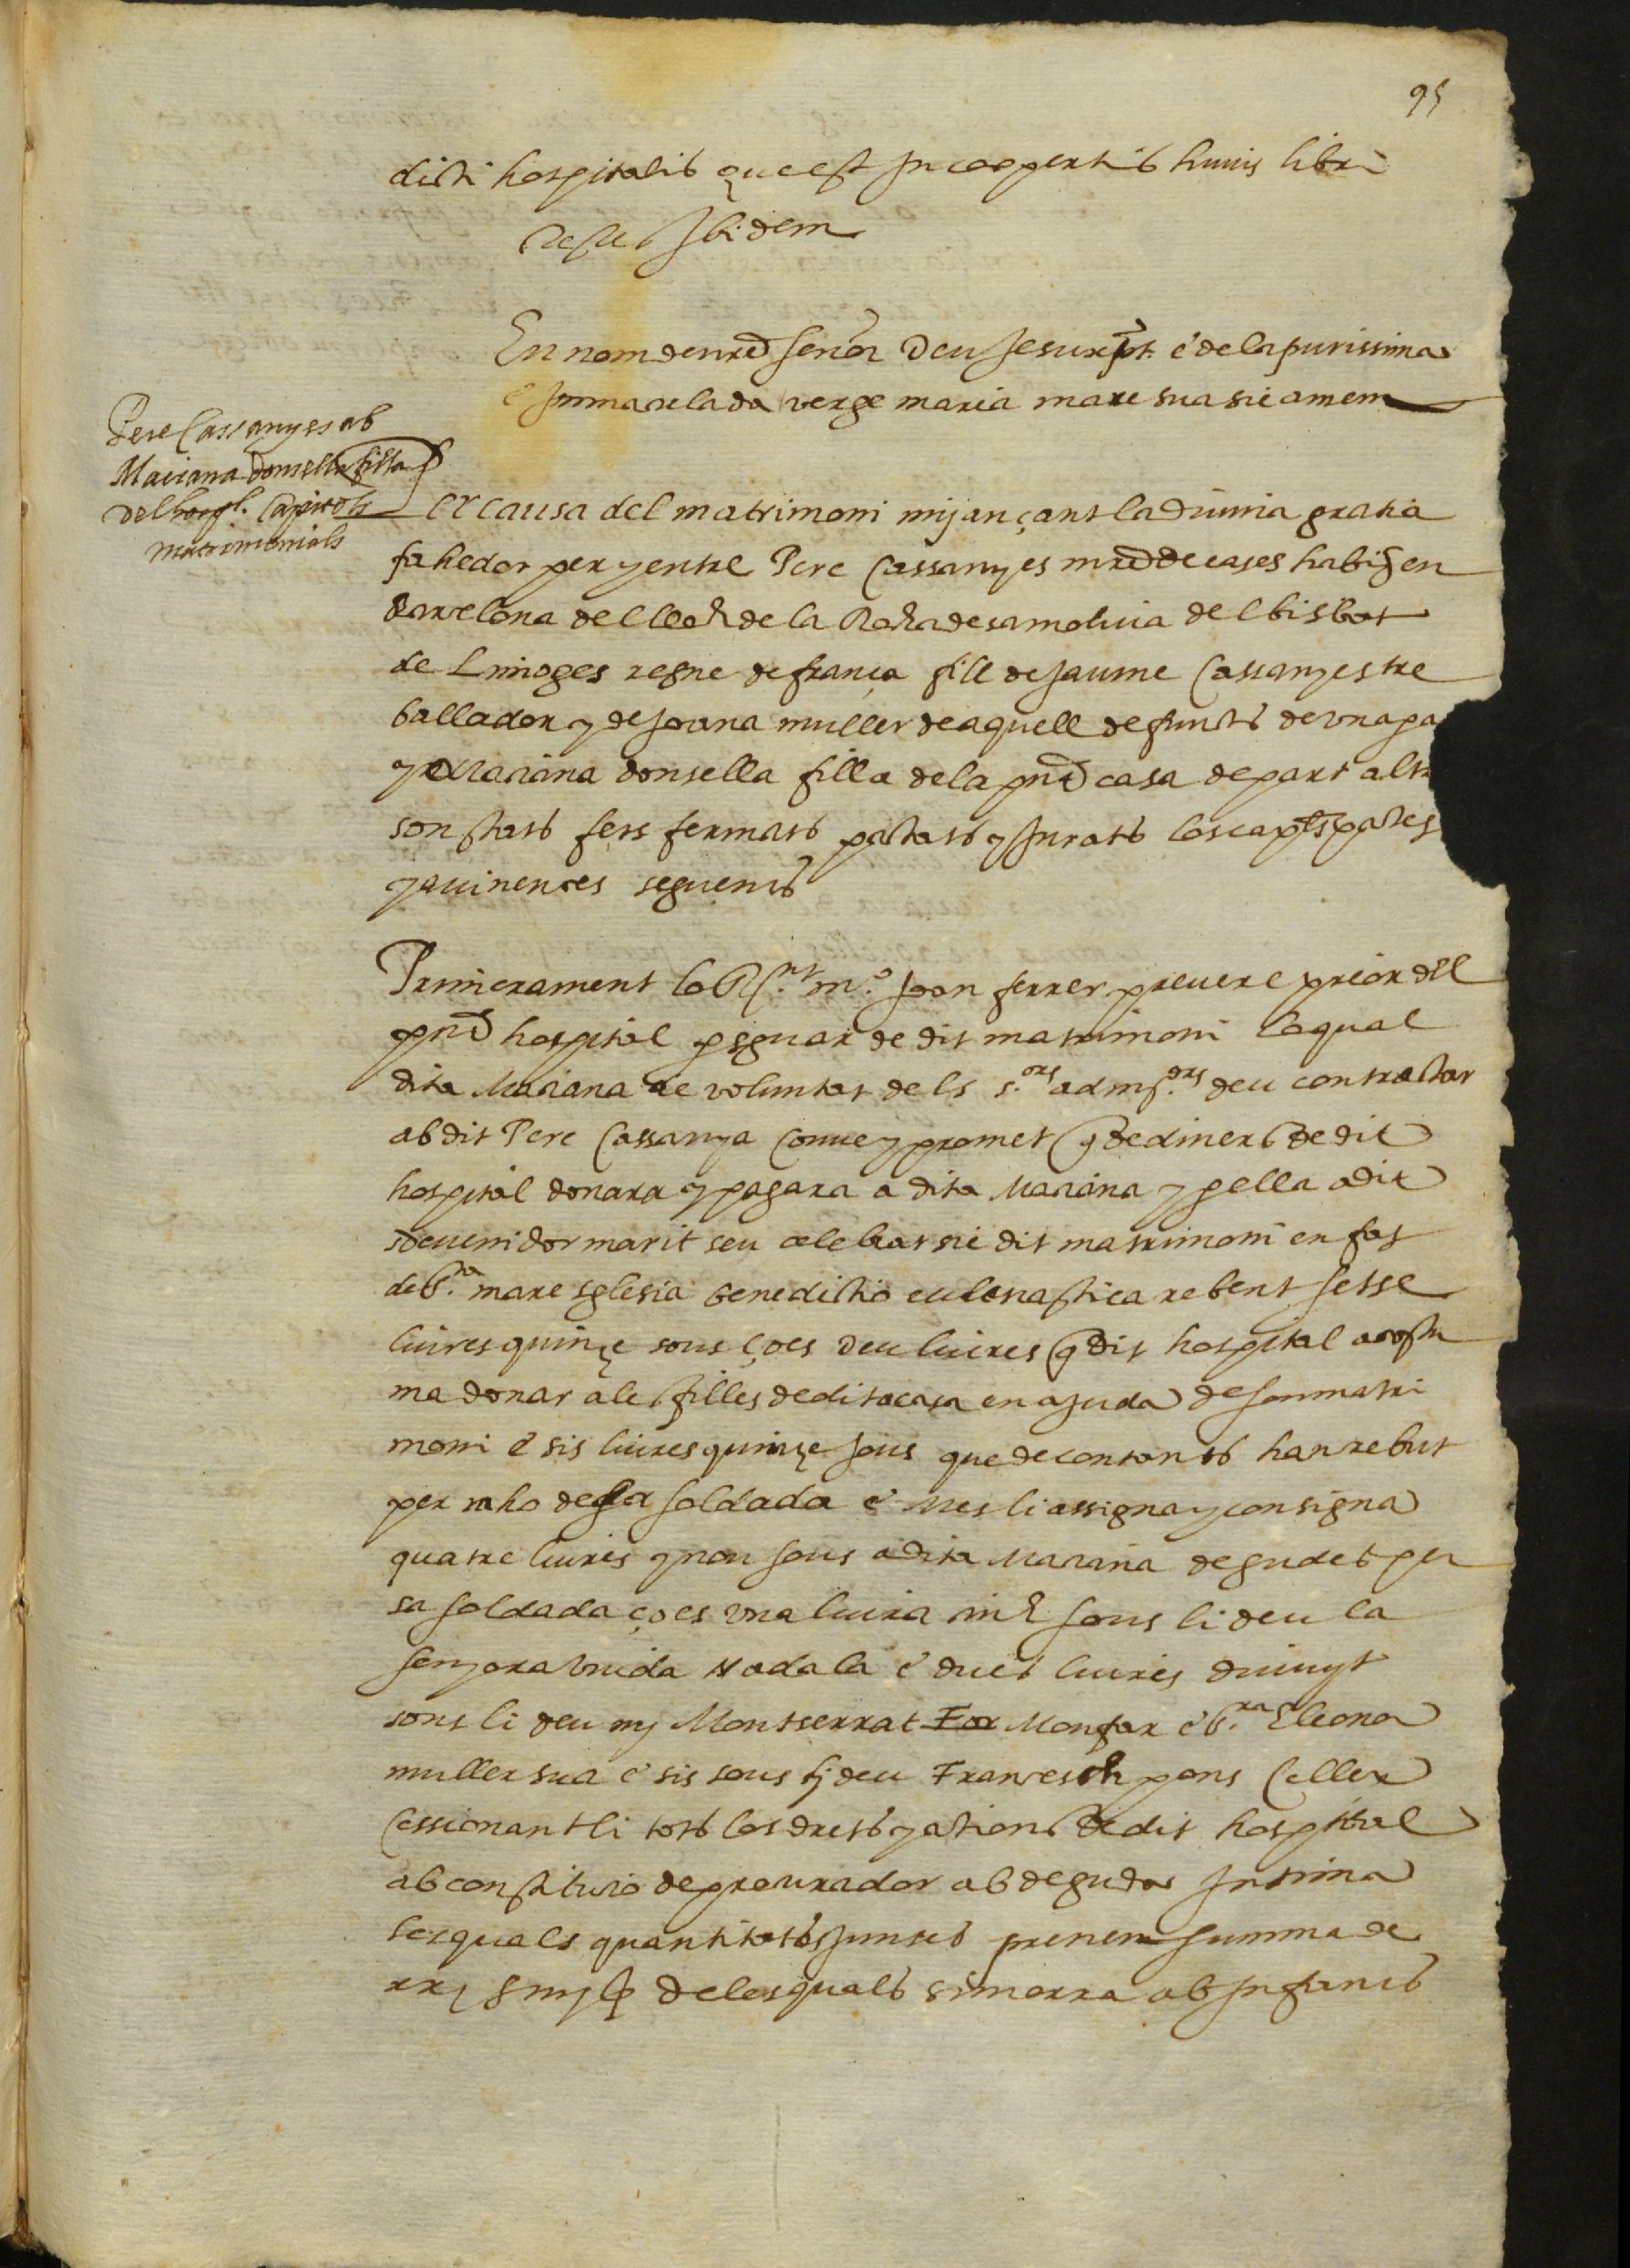 95
dicti hospitalis que est in coopertis huius libri
Ibidem
En nom de nrē senor Deu Jesuxpt. e de la purissima
e Immaculada verge maria mare sua sie amen
Pere Cassanyes ab
Mariana donsella filla
del hospl. Capitols
matrimonials
Per causa del matrimoni mijançant la diuina gratia
fahedor per y entre Pere Cassanyes mrē de cases habit en
Barcelona del lloch de la Rocha de samoluia del bisbat
de Limoges regne de frança fill de Jaume Cassanyes tre
ballador y de Joana muller de aquell defuncts de vna pa
y Mariana donsella filla de la pnt casa de part altr
son stats fets fermats pactats y jurats los capls pactes
y auinences seguents
Primerament lo Rt. m.º Joan ferrer preuere prior del
pnt hospital p sguar de dit matrimoni loqual
dita Mariana de voluntat dels s.ors admrs.ors deu contractar
ab dit Pere Cassanya conue y promet q de diners de dit
hospital donara y pagara a dita Mariana y p ella a dit
sdeuenidor marit seu celebrat sie dit matrimoni en fas
de s.ta mare sglesia benedictio ecclesiastica rebent setse
liures quinçe sous ço es deu liures q dit hospital acostu
ma donar a les filles de dita casa en ajuda de son matri
moni e sis liures quinçe sous que de contants han rebut
per raho de sa soldada e mes li assigna y consigna
quatre liures y nou sous a dita Mariana degudes per
sa soldada ço es vna liura sous li deu la
senyora viuda Nadala e dues liures diuuyt
sous li deu mº Montserrat Monfar e s.ra Eleona
muller sua e sis sous li deu Francesch pons Celler
Cessionantli tots los drets y actions de dit hospital
ab constitutio de procurador ab deguda Intima
les quals quantitats juntes prenen summa de
xxj de les quals si morra ab infants